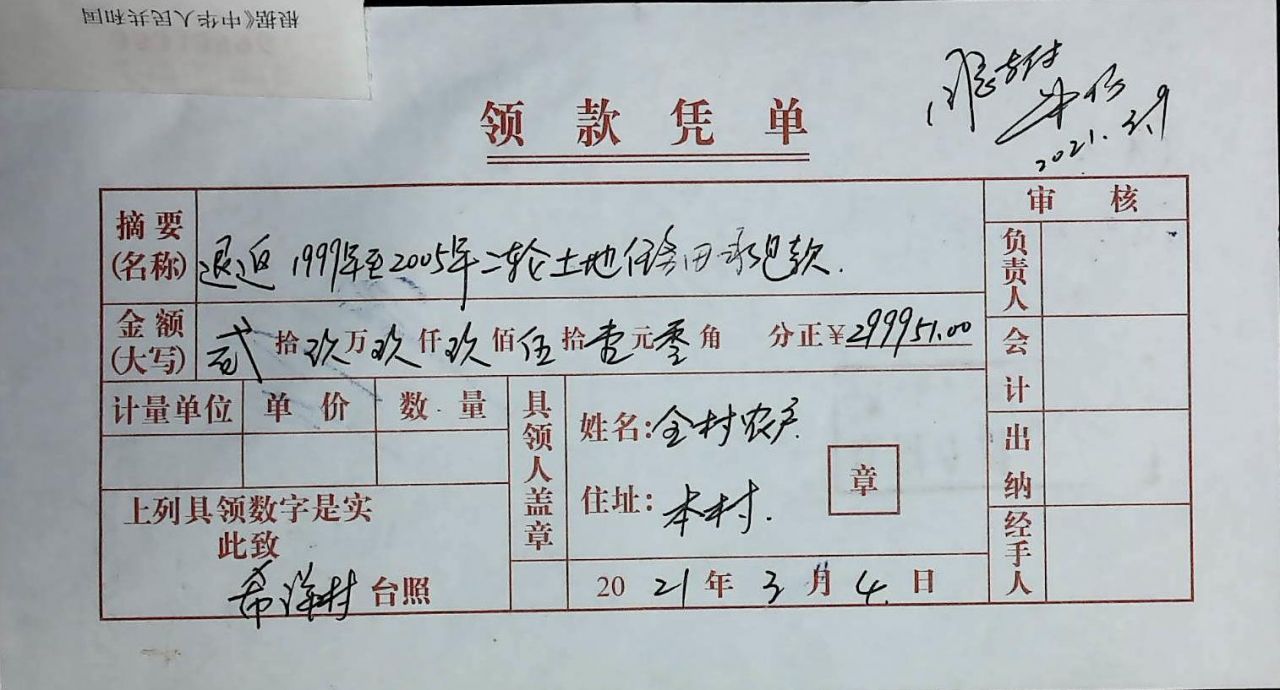 根据《中华人民共和国
2021.3.9
领款凭单
审核
摘要(名称) 退返1999年至2005年二轮土地任务田承包款.
负责人
金额(大写) 贰拾玖万玖仟玖佰伍拾壹元零角 分正¥299951.00
会计
计量单位 单价 数量
具领人盖章
姓名:全村农户
住址:本村.
章
出纳
上列具领数字是实
此致
村台照
2021年3月4日
经手人